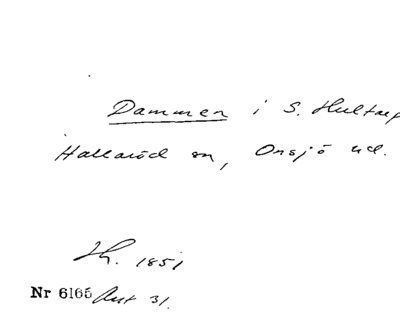 Dammen i S. Hultarp
Hallaröd sn, Onsjö hd.
1851
Nr 6165 Ant 31.